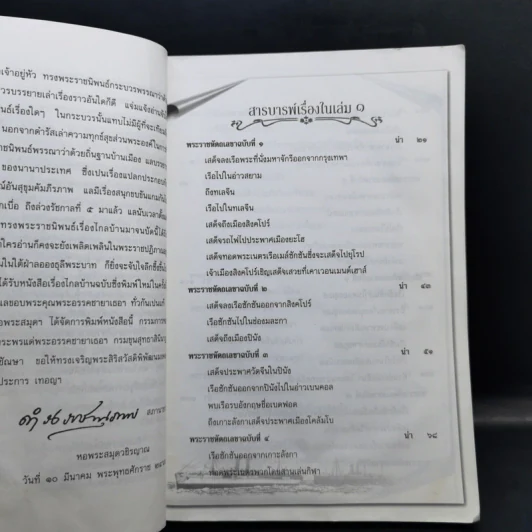 เจ้าอยู่หัว ทรงพระราชนิพนธ์กระบวรพรรณาว่า
วรบรรยายเล่าเรื่องราวอันใดก็ดี แจ่มแจ้งอ่านเข้า
พนธ์เรื่องใดๆ ในกระบวนนั้นแทบไม่มีผู้ที่จะเทียม
นอกจากดำรัสเล่าความทุกข์สุขส่วนพระองค์ใน
ราชนิพนธ์พรรณาว่าด้วยถิ่นฐานบ้านเมือง แล
ของนานาประเทศ ซึ่งเปนเรื่องแปลกประกอบ
ณ์อันสุขุมคัมภีรภาพ แลมีเรื่องสนุกขบขันแกม
เบื่อ ถึงล่วงรัชกาลที่ ๕ มาแล้ว แลนับเวลาตั้งแต่
ราชนิพนธ์เรื่องไกลบ้านมาจนบัดนี้ได้
ใครอ่านก็คงจะยังเพลิดเพลินในพระราชปฏิภาณ
ในใต้ฝ่าลอองธุลีพระบาท ก็ยิ่งจะจับใจลึกซึ้งขึ้น
ได้รับหนังสือเรื่องไกลบ้านฉบับซึ่งพิมพ์ใหม่ใน
แลขอบพระคุณพระอรรคชายาเธอฯ ทั่วกันเปนแน่
พระสมุดฯ ได้จัดการพิมพ์หนังสือนี้ กรรมการ
พรแด่พระอรรคชายาเธอฯ กรมขุนสุทธาสินีนาฏ
ชัณษา ขอให้ทรงเจริญพระสิริสวัสดิพิพัฒนมง
ประการ เทอญฯ
สภานายก
หอพระสมุดวชิรญาณ
วันที่ ๑๐ มีนาคม พระพุทธศักราช
สารบารพ์เรื่องในเล่ม ๑
พระราชหัตถเลขาฉบับที่ ๑ น่า ๒๑
เสด็จลงเรือพระที่นั่งมหาจักรีออกจากกรุงเทพฯ
เรือไปในอ่าวสยาม
ถึงทเลจีน
เรือไปในทเลจีน
เสด็จถึงเมืองสิงคโปร์
เสด็จรถไฟไปประพาศเมืองยะโฮ
เสด็จทอดพระเนตรเรือเมล์ซักซันซึ่งจะเสด็จไปยุโรป
เจ้าเมืองสิงคโปร์เชิญเสด็จเสวยที่เคาเวอนเมนต์เฮาส์
พระราชหัตถเลขาฉบับที่ ๒ น่า ๔๓
เสด็จลงเรือซักซันออกจากสิงคโปร์
เรือซักซันไปในช่องมละกา
เสด็จถึงเมืองปินัง
พระราชหัตถเลขาฉบับที่ ๓ น่า ๕๑
เสด็จประพาศวัดจีนในปินัง
เรือซักซันออกจากปินังไปในอ่าวเบนคอล
พบเรือรบอังกฤษชื่อเบดฟอด
ถึงเกาะลังกาเสด็จประพาศเมืองโคลัมโบ
พระราชหัตถเลขาฉบับที่ ๔ น่า ๖๘
เรือซักซันออกจากเกาะลังกา
ทอดพระเนตรพวกโดยสานเล่นกิฬา